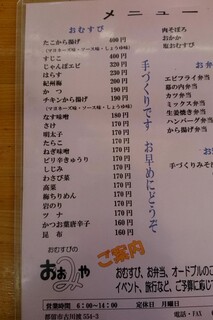 メニュー
おむすび
たこから揚げ 400円
(マヨネーズ味・ソース味・しょうゆ味)
すじこ 400円
じゃんぼエビ 320円
はらす 230円
紀州梅 200円
かつ 190円
チキンから揚げ 190円
(マヨネーズ味・ソース味・しょうゆ味)
なす味噌 180円
さけ 170円
明太子 170円
たらこ 170円
ねぎ味噌 170円
ピリ辛きゅうり 170円
しじみ 170円
わさび菜 170円
高菜 170円
梅ちりめん 170円
岩のり 170円
ツナ 170円
かつお葉唐辛子 160円
昆布 160円
手づくりです お早めにどうぞ
肉そぼろ
おかか
塩おむすび
お弁当
エビフライ弁当
幕の内弁当
カツ弁当
ミックス弁当
生姜焼き弁当
ハンバーグ弁当
から揚げ弁当
お
手づくりみそ
おむすびの
ご案内
おむすび、お弁当、オードブルのご
イベント、旅行など、ご予算に応じて
営業時間 6:00~14:00 定休日 月曜日
電話・FAX